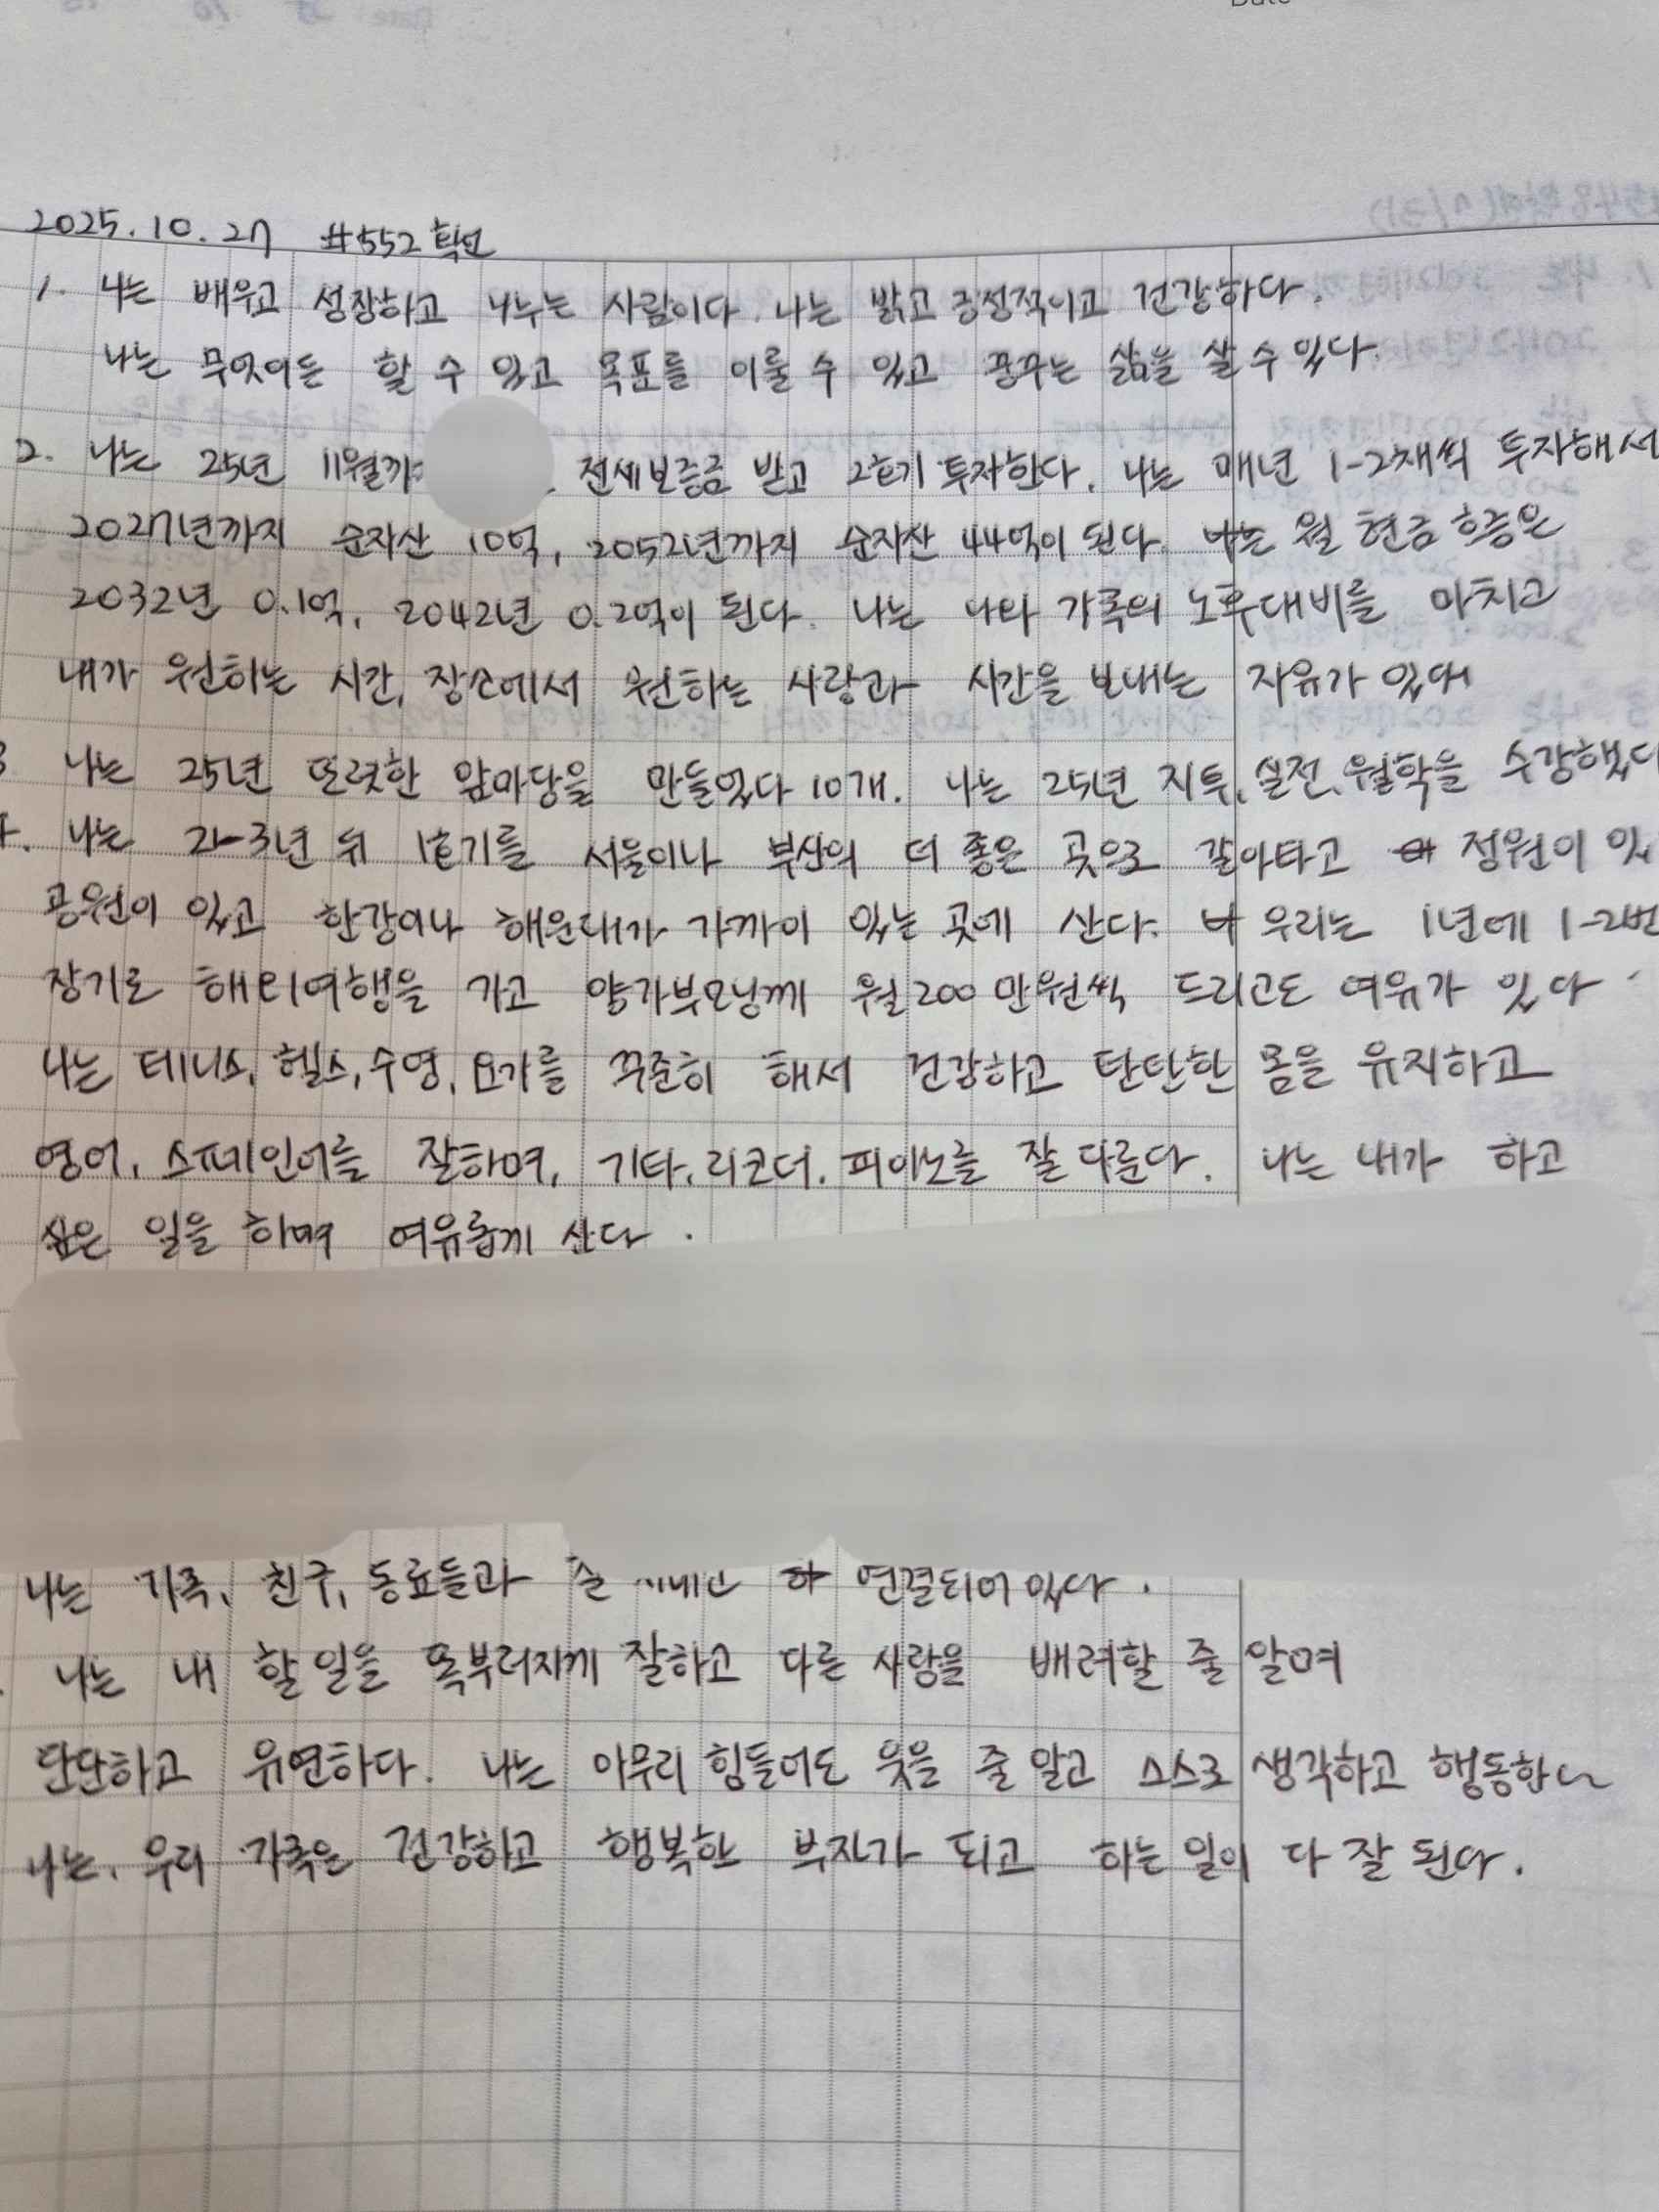 Date
2025.10.27 #552 확언
1. 나는 배우고 성장하고 나누는 사람이다. 나는 밝고 긍정적이고 건강하다.
나는 무엇이든 할 수 있고 목표를 이룰 수 있고 꿈꾸는 삶을 살 수 있다.
2. 나는 25년 11월까 전세보증금 받고 2호기 투자한다. 나는 매년 1-2채씩 투자해서
2027년까지 순자산 10억, 2052년까지 순자산 44억이 된다. 나는 월 현금 흐름은
2032년 0.1억, 2042년 0.2억이 된다. 나는 나와 가족의 노후대비를 마치고
내가 원하는 시간, 장소에서 원하는 사람과 시간을 보내는 자유가 있다
3 나는 25년 또렷한 앞마당을 만들었다 10개. 나는 25년 지투, 실전, 월학을 수강했다
4. 나는 2-3년 뒤 1호기를 서울이나 부산의 더 좋은 곳으로 갈아타고 정원이 있
공원이 있고 한강이나 해운대가 가까이 있는 곳에 산다. 우리는 1년에 1-2번
장기로 해외여행을 가고 양가부모님께 월 200만원씩 드리고도 여유가 있다
나는 테니스, 헬스, 수영, 요가를 꾸준히 해서 건강하고 탄탄한 몸을 유지하고
영어, 스페인어를 잘하며, 기타, 리코더, 피아노를 잘 다룬다. 나는 내가 하고
싶은 일을 하며 여유롭게 산다.
나는 가족, 친구, 동료들과 연결되어 있다.
나는 내 할 일을 똑부러지게 잘하고 다른 사람을 배려할 줄 알며
단단하고 유연하다. 나는 아무리 힘들어도 웃을 줄 알고 스스로 생각하고 행동한다
나는, 우리 가족은 건강하고 행복한 부자가 되고 하는 일이 다 잘 된다.